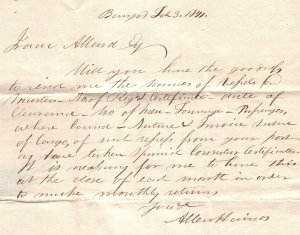 Bangor Feb 3. 1841.
Isaac Allard Esq
Will you have the goodness
to send me the names of Vessels &
Masters - No of Regs Certificate - date of
Clearance - No of Men - Tonnage - Passengers,
where bound - Nature & Invoice Value
of Cargo, of such vessels from your port
as have taken Spanish Certificates.
It is necessary for me to have this
at the close of each month in order
to make monthly returns
Yours
Allen Haines